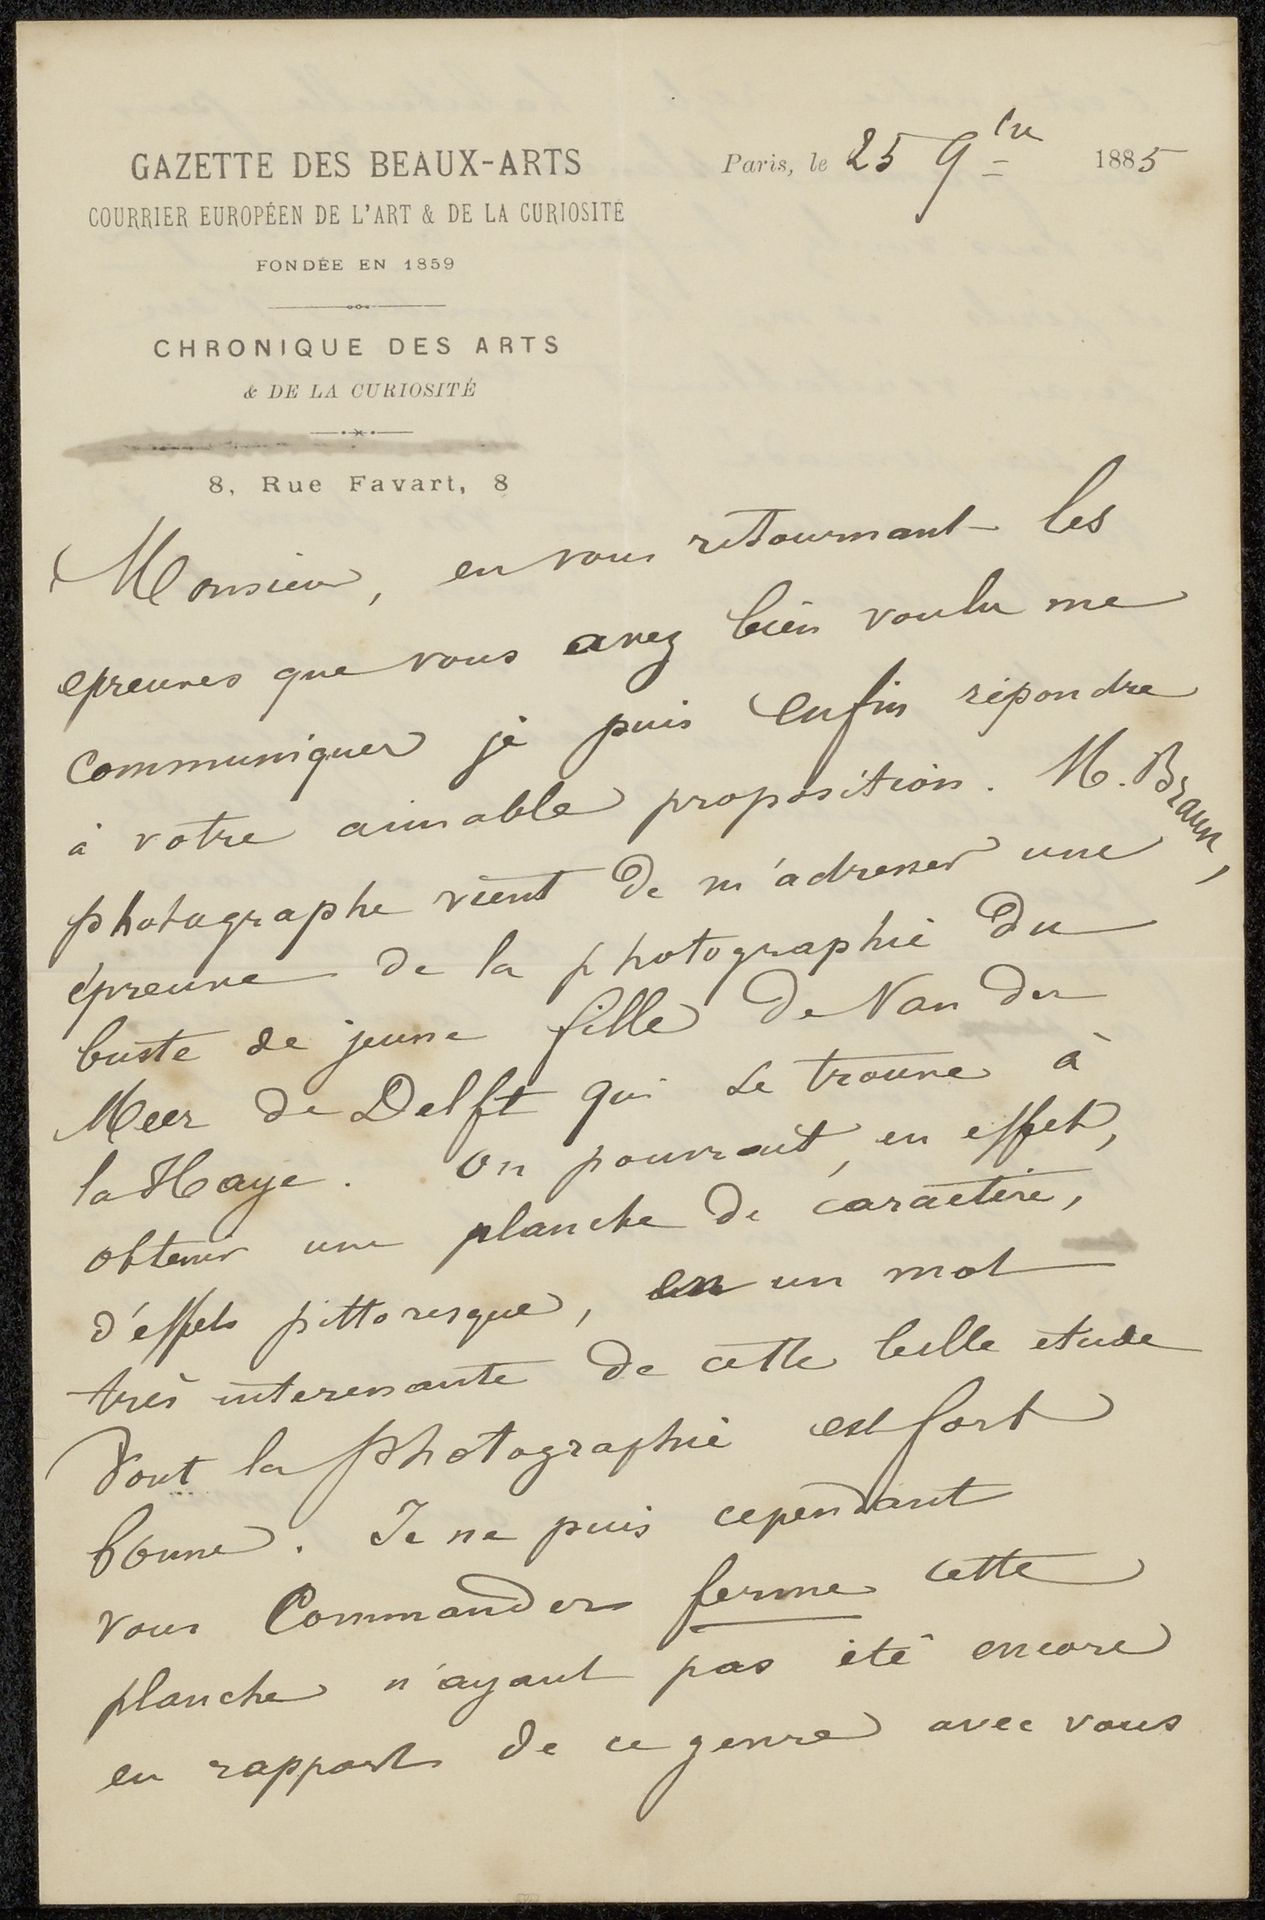 GAZETTE DES BEAUX-ARTS
COURRIER EUROPÉEN DE L'ART & DE LA CURIOSITÉ
FONDÉE EN 1859
CHRONIQUE DES ARTS
& DE LA CURIOSITÉ
8, Rue Favart, 8
Paris, le 25 9bre 1885
Monsieur, en vous retournant les
epreuves que vous avez bien voulu me
communiquer je puis enfin répondre
à votre aimable proposition. M. Braun,
photographe vient de m'adresser une
épreuve de la photographie du
buste de jeune fille de Van der
Meer de Delft qui se trouve à
la Haye. On pourrait, en effet,
obtenir une planche de caractère,
d'effets pittoresque, en un mot
très interessante de cette belle etude
dont la photographie est fort
bonne. Je ne puis cependant
vous Commander ferme cette
planche n'ayant pas été encore
en rapports de ce genre avec vous